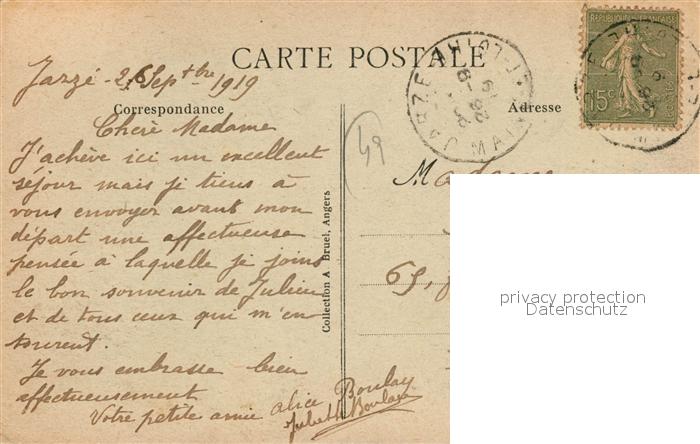 CARTE POSTALE
Jarzé - 26 Septbre 1919
Correspondance
Adresse
Chère Madame
J'achève ici un excellent
séjour mais je tiens à
vous envoyer avant mon
départ une affectueuse
pensée à laquelle je joins
le bon souvenir de Julien
et de tous ceux qui m'en-
tourent.
Je vous embrasse bien
affectueusement
Votre petite amie Alice Boulay
Juliette Boulay
Collection A. Bruel, Angers
49
Madame
65,
REPUBLIQUE FRANÇAISE
15c
privacy protection
Datenschutz